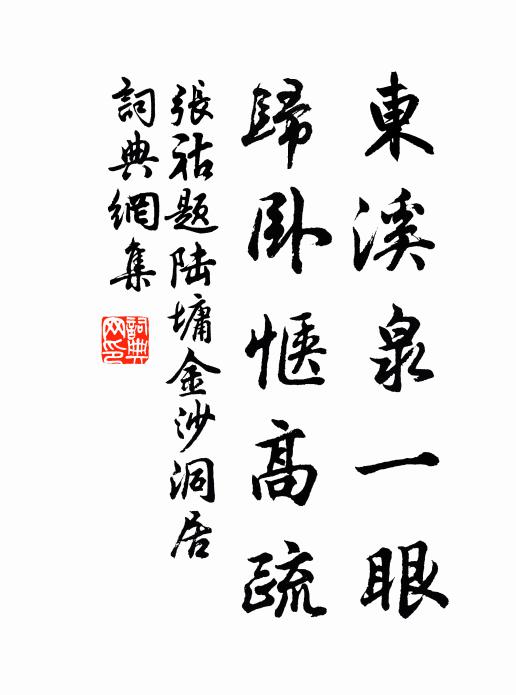 東溪泉一眼
歸臥愜高疏
張祜題陸墉金沙洞居
詞典網集
詞典網印